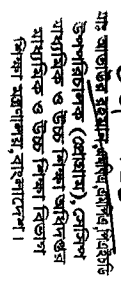 উপপরিচালক (প্রোগ্রাম), সেসিপ
মাধ্যমিক ও উচ্চ শিক্ষা অধিদপ্তর
মাধ্যমিক ও উচ্চ শিক্ষা বিভাগ
শিক্ষা মন্ত্রণালয়, বাংলাদেশ।